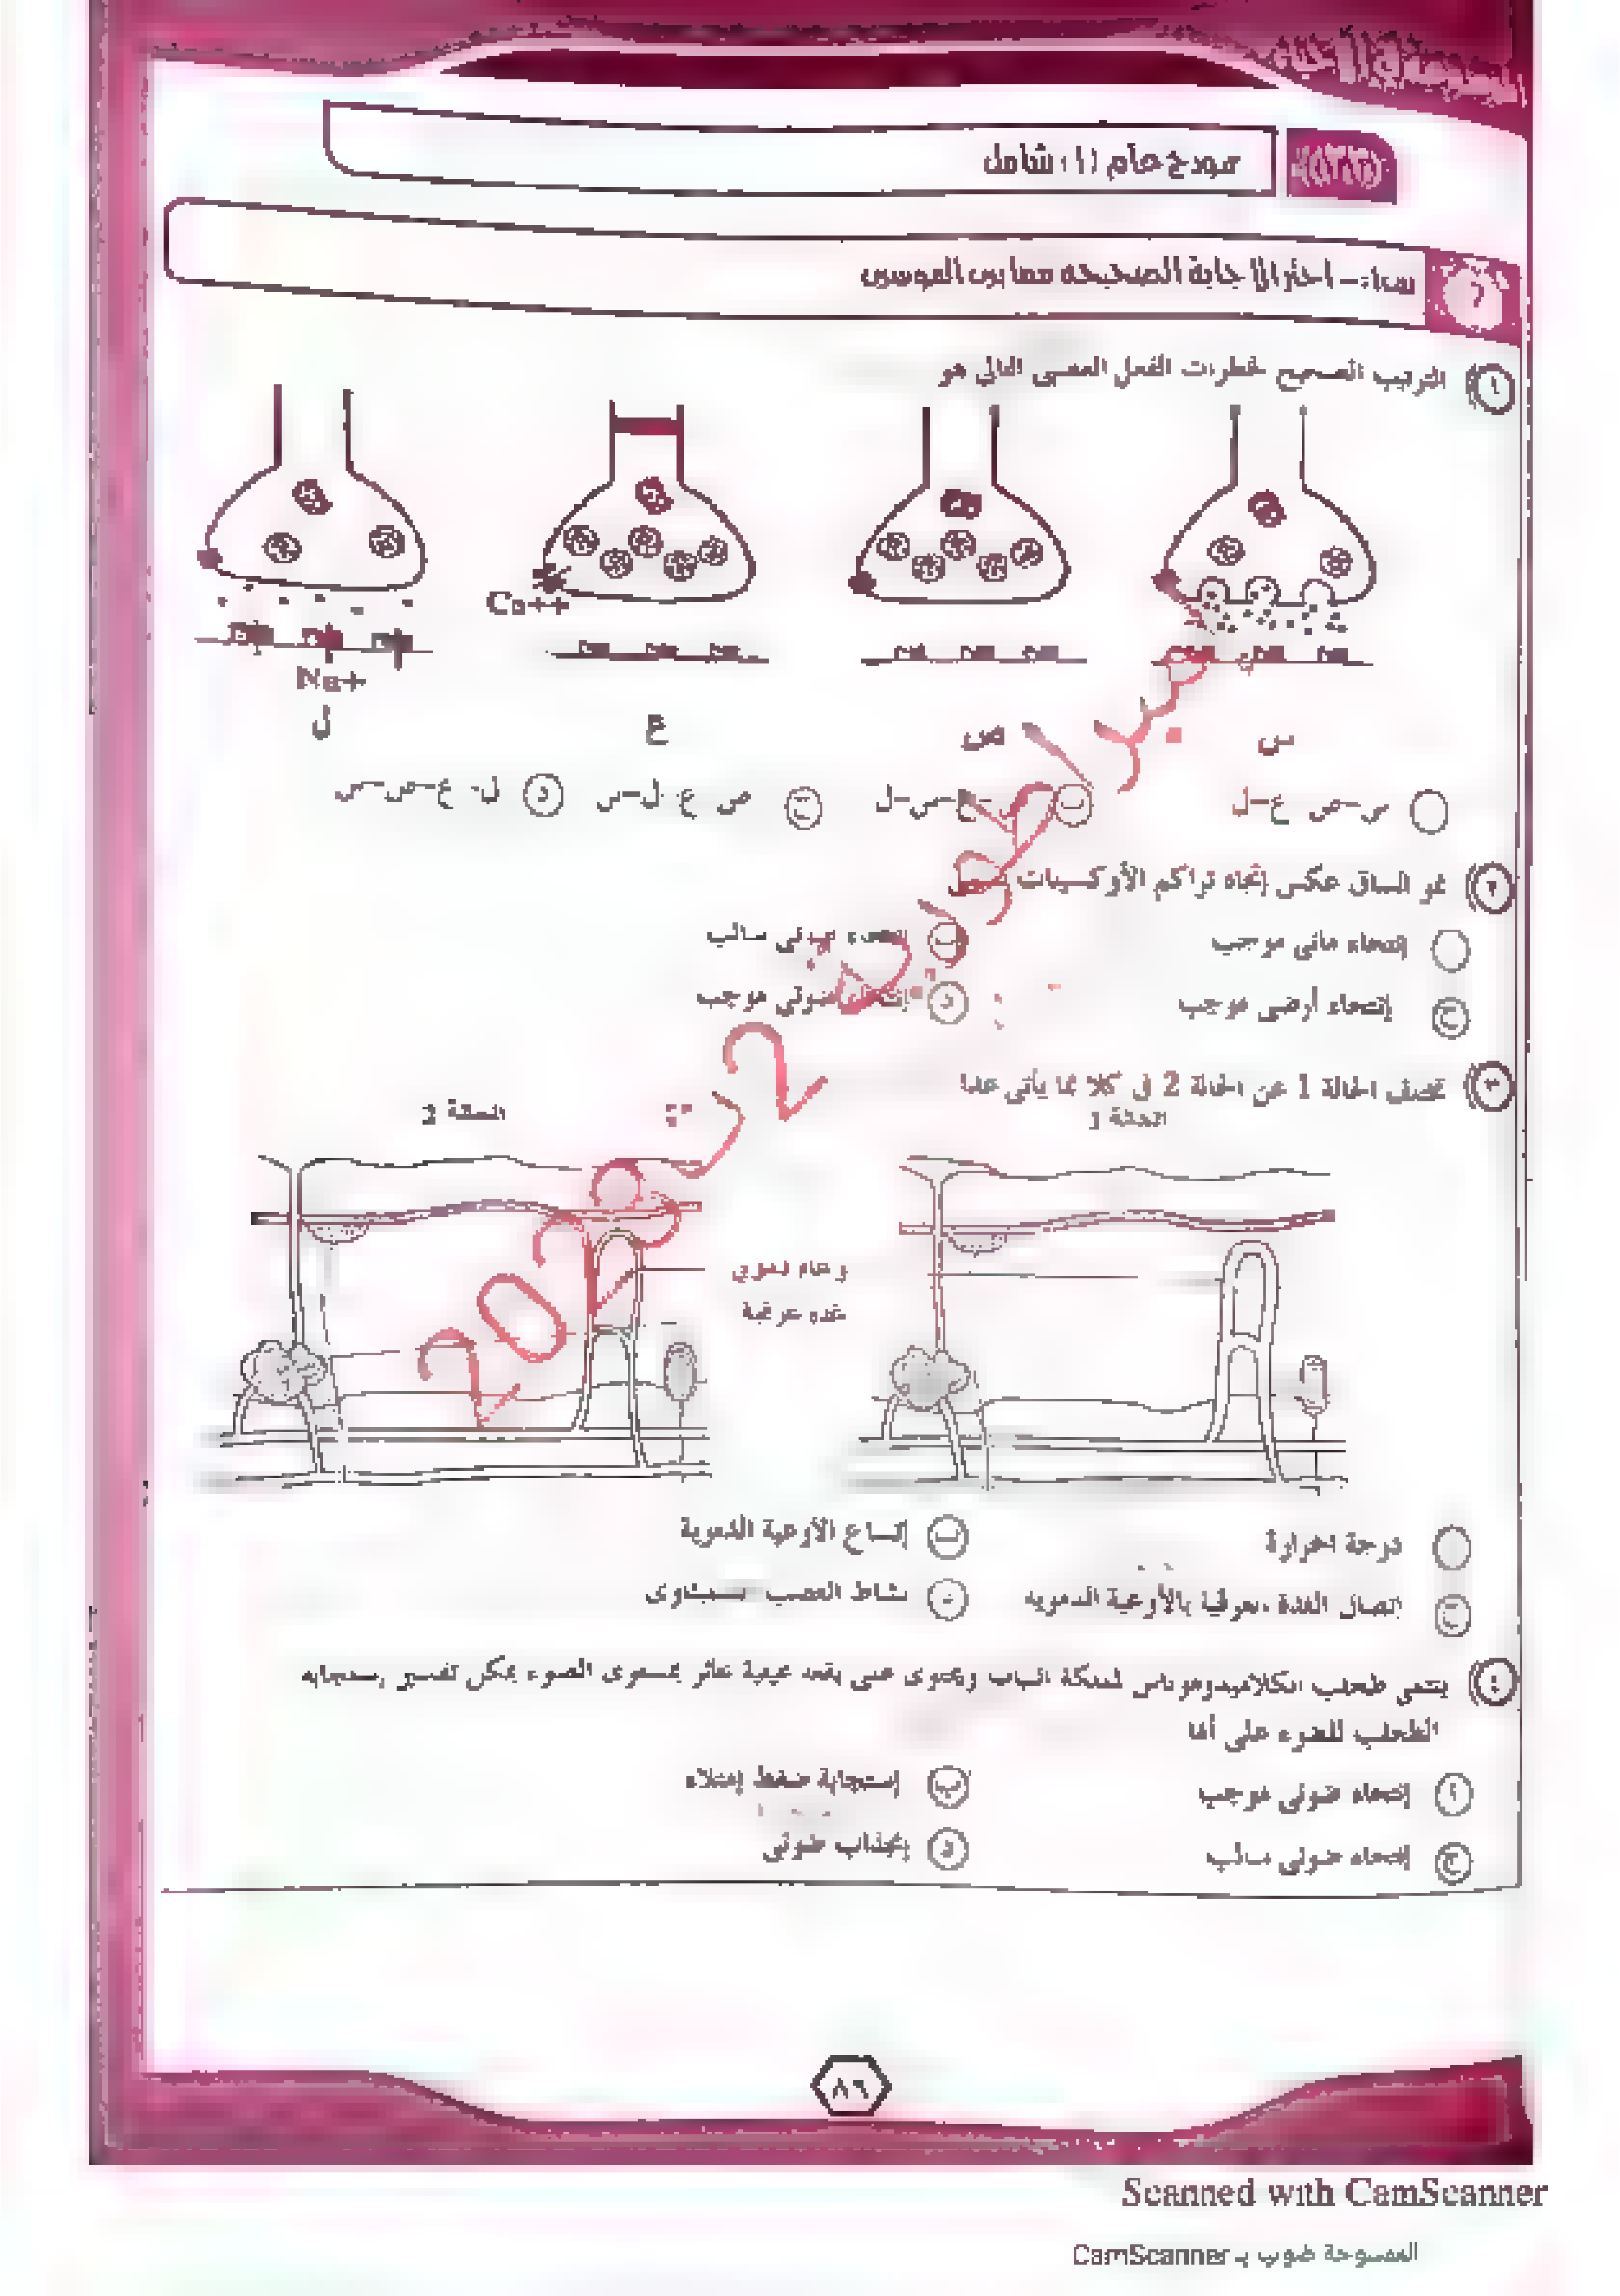 نموذج عام (١) شامل
اختر الإجابة الصحيحة مما بين القوسين
١ الترتيب الصحيح لخطوات الفعل العصبى التالى هو
Ca++
Na+
س
ص
ع
ل
س-ص-ع-ل
ب
ج ص-ع-ل-س
د ل-ع-ص-س
٢ نمو الساق عكس إتجاه تراكم الأوكسينات
إنتحاء مائى موجب
ب إنتحاء ضوئى سالب
ج إنتحاء أرضى موجب
د إنتحاء ضوئى موجب
٣ تختلف الحالة 1 عن الحالة 2 فى كلا مما يأتى عدا
الحالة 1
الحالة 2
وعاء دموي
غدة عرقية
درجة الحرارة
ب إتساع الأوعية الدموية
ج إتصال الغدة العرقية بالأوعية الدموية
د نشاط العصب السمبتاوى
٤ ينتمى طحلب الكلاميدوموناس لمملكة النبات ويحتوى على بقعة عينية تتأثر بمستوى الضوء يمكن تفسير إستجابة
الطحلب للضوء على أنها
أ إنتحاء ضوئى موجب
ب إستجابة ضغط إمتلاء
ج إنتحاء ضوئى سالب
د إنجذاب ضوئى
٨٦
Scanned with CamScanner
الممسوحة ضوئيا بـ CamScanner